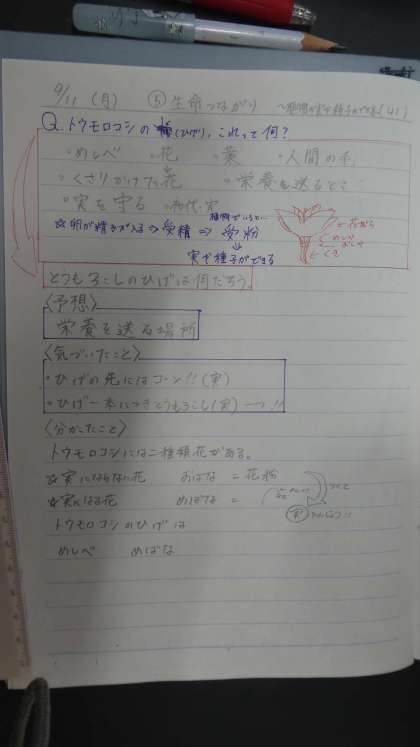 9/11 (月) ⑤ 生命つながり
Q. トウモロコシの (ひげ), これって何?
・めしべ ・花 ・葉 ・人間の毛
・くさりかけた花 ・栄養を送るところ
・実を守る ・初代・実
☆卵が精子が入る⇒受精 ⇒ 受粉
実や種子ができる
花びら
めしべ
おしべ
くき
とうもろこしのひげは何だろう。
〈予想〉
栄養を送る場所
〈気づいたこと〉
・ひげの先にはコーン!!(実)
・ひげ一本につきとうもろこし(実)一つ!!
〈分かったこと〉
トウモロコシには二種類花がある。
☆実にならない花 おばな = 花粉
☆実になる花 めばな =
実
トウモロコシのひげは
めしべ めばな